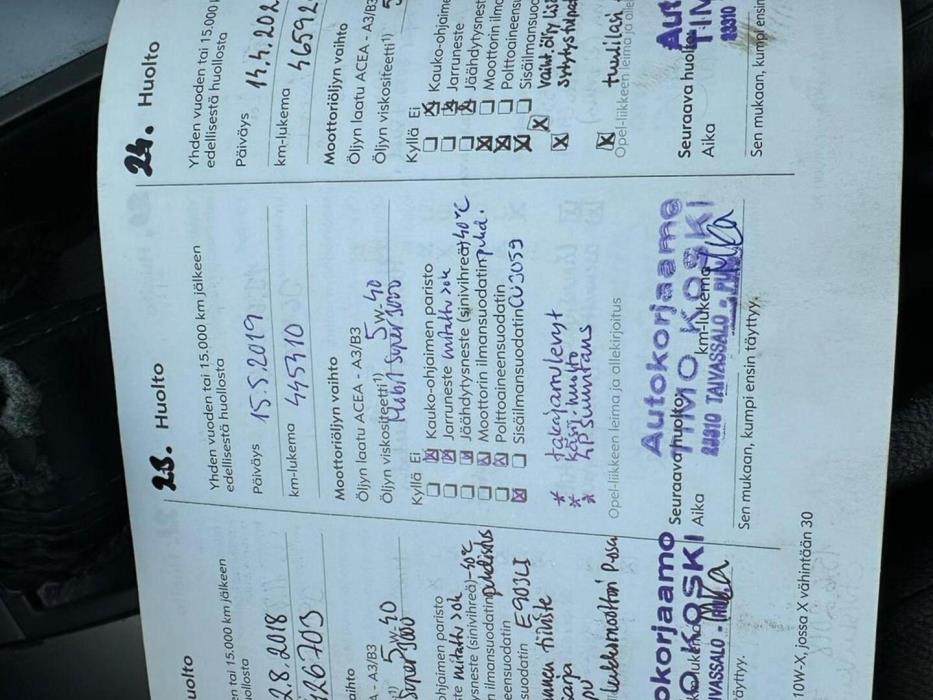 uolto
en tai 15.000 km jälkeen
ollosta
2.8.2018
426703
aihto
A - A3/B3
5W-40
Super 3000
hjaimen paristo
te mitattu 50k
ysneste (sinivihreä) -40°C
n ilmansuodatin puhdistus
eensuodatin
suodatin E903LI
okorjaamo
O KOSKI
IVASSALO -
äyttyy.
23. Huolto
Yhden vuoden tai 15.000 km jälkeen
edellisestä huollosta
Päiväys 15.5.2019
km-lukema 445310
Moottoriöljyn vaihto
Öljyn laatu ACEA - A3/B3
Öljyn viskositeetti1) 5W-40
Mobil Super 3000
Kyllä Ei
Kauko-ohjaimen paristo
Jarruneste mitattu ok
Jäähdytysneste (sinivihreä) -40°C
Moottorin ilmansuodatin puhd.
Polttoaineensuodatin
Sisäilmansuodatin CU3059
* takajarrulevyt
* käsij. huolto
*
Opel-liikkeen leima ja allekirjoitus
Autokorjaamo
Seuraava huolto
TIMO KOSKI
Aika km-lukema
23310 TAIVASSALO - PUH.
Sen mukaan, kumpi ensin täyttyy.
10W-X, jossa X vähintään 30
24. Huolto
Yhden vuoden tai 15.000
edellisestä huollosta
Päiväys 14.4.202
km-lukema 46592
Moottoriöljyn vaihto
Öljyn laatu ACEA - A3/B3
Öljyn viskositeetti1) 5
Kyllä Ei
Kauko-ohjaime
Jarruneste
Jäähdytysnest
Moottorin ilmo
Polttoaineensu
Sisäilmansuod
Vaiht. öljy lis
sytytystulpat
tuulilasi
Opel-liikkeen leima ja alle
Aut
Seuraava huolto
TIM
Aika
23310
Sen mukaan, kumpi ensin